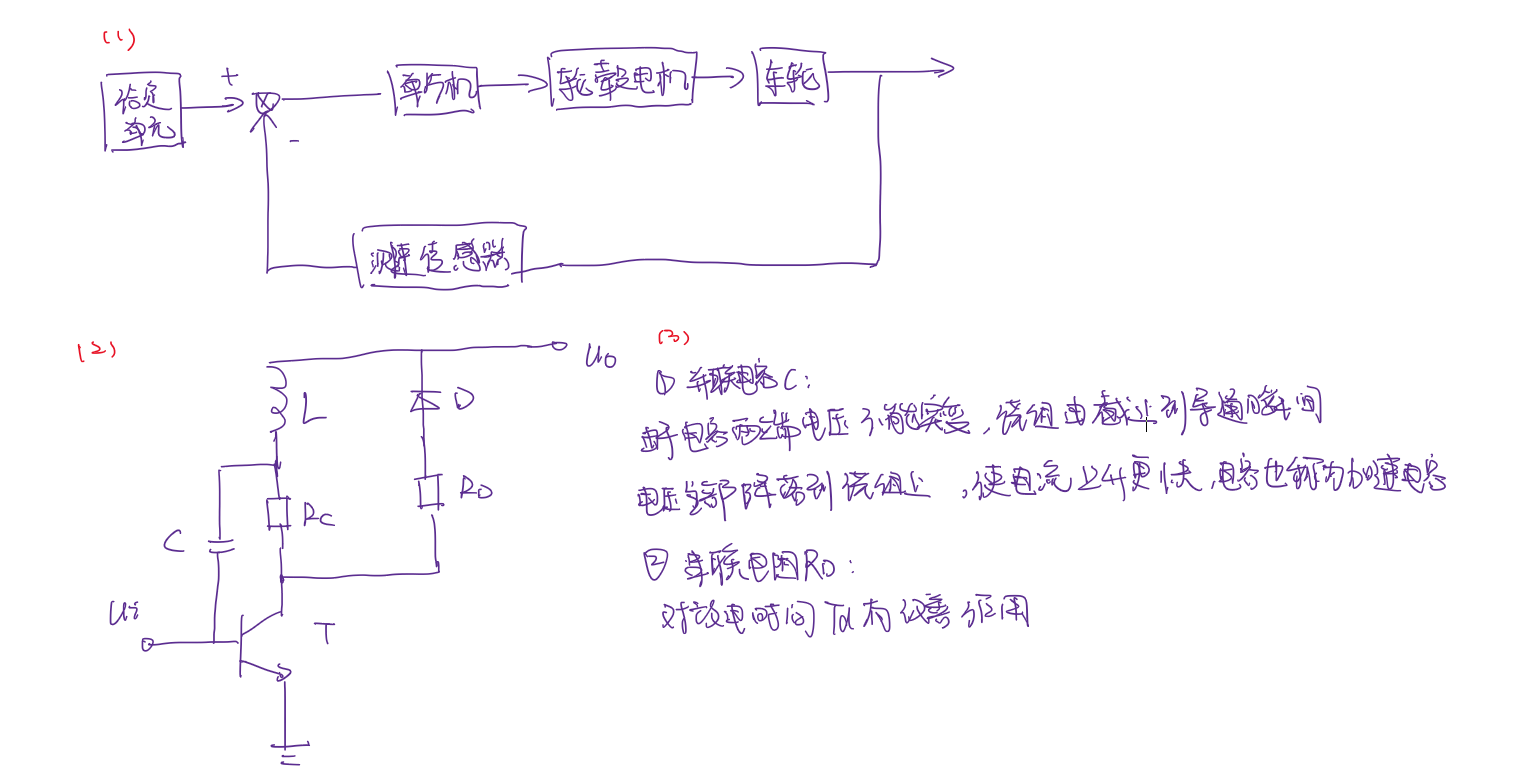 (1)
给定
单元
+
-
单片机
轮毂电机
车轮
测速传感器
(2)
U0
L
D
RD
RC
C
Ui
T
(3)
① 并联电容C:
由于电容两端电压不能突变,绕组由截止到导通瞬间
电压全部降落到绕组上,使电流上升更快,电容也称为加速电容
② 串联电阻RD:
对放电时间Td有改善作用